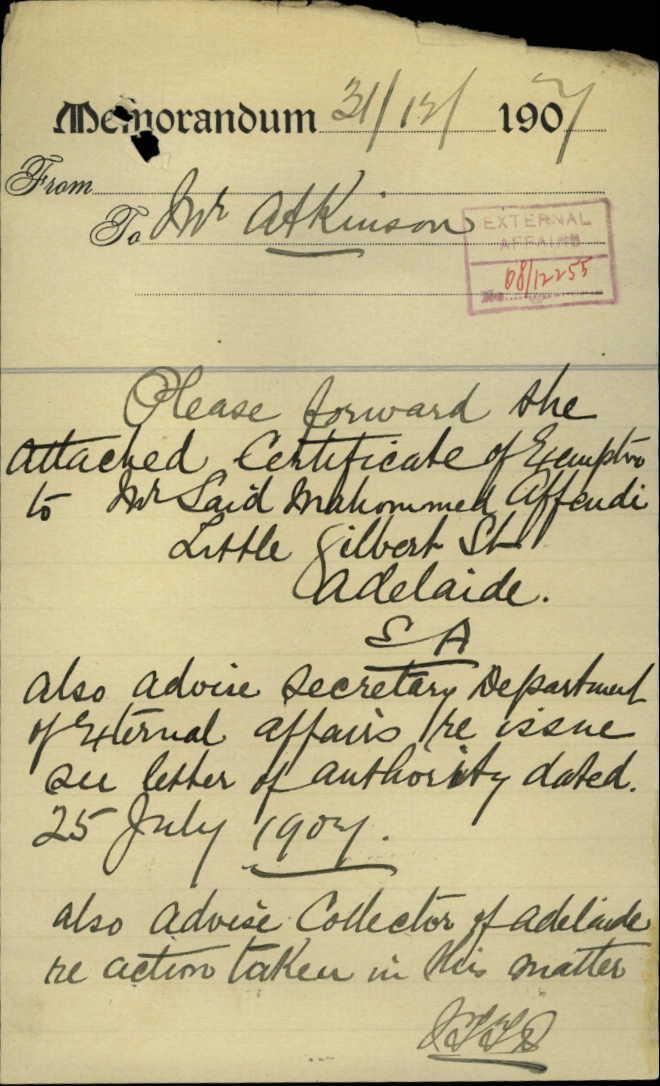 Memorandum 31/12/ 1907
From
To Mr Atkinson
EXTERNAL
AFFAIRS
08/12255
No.
Please forward the
attached Certificate of Exemption
to Mr Said Mahommed Affendi
Little Gilbert St
Adelaide.
S A
also advise Secretary Department
of External affairs re issue
see letter of authority dated.
25 July 1907.
also advise Collector of Adelaide
re action taken in this matter